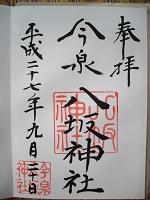 奉拝
今泉八坂神社
八坂神社
平成二十七年九月二十日
今泉神社